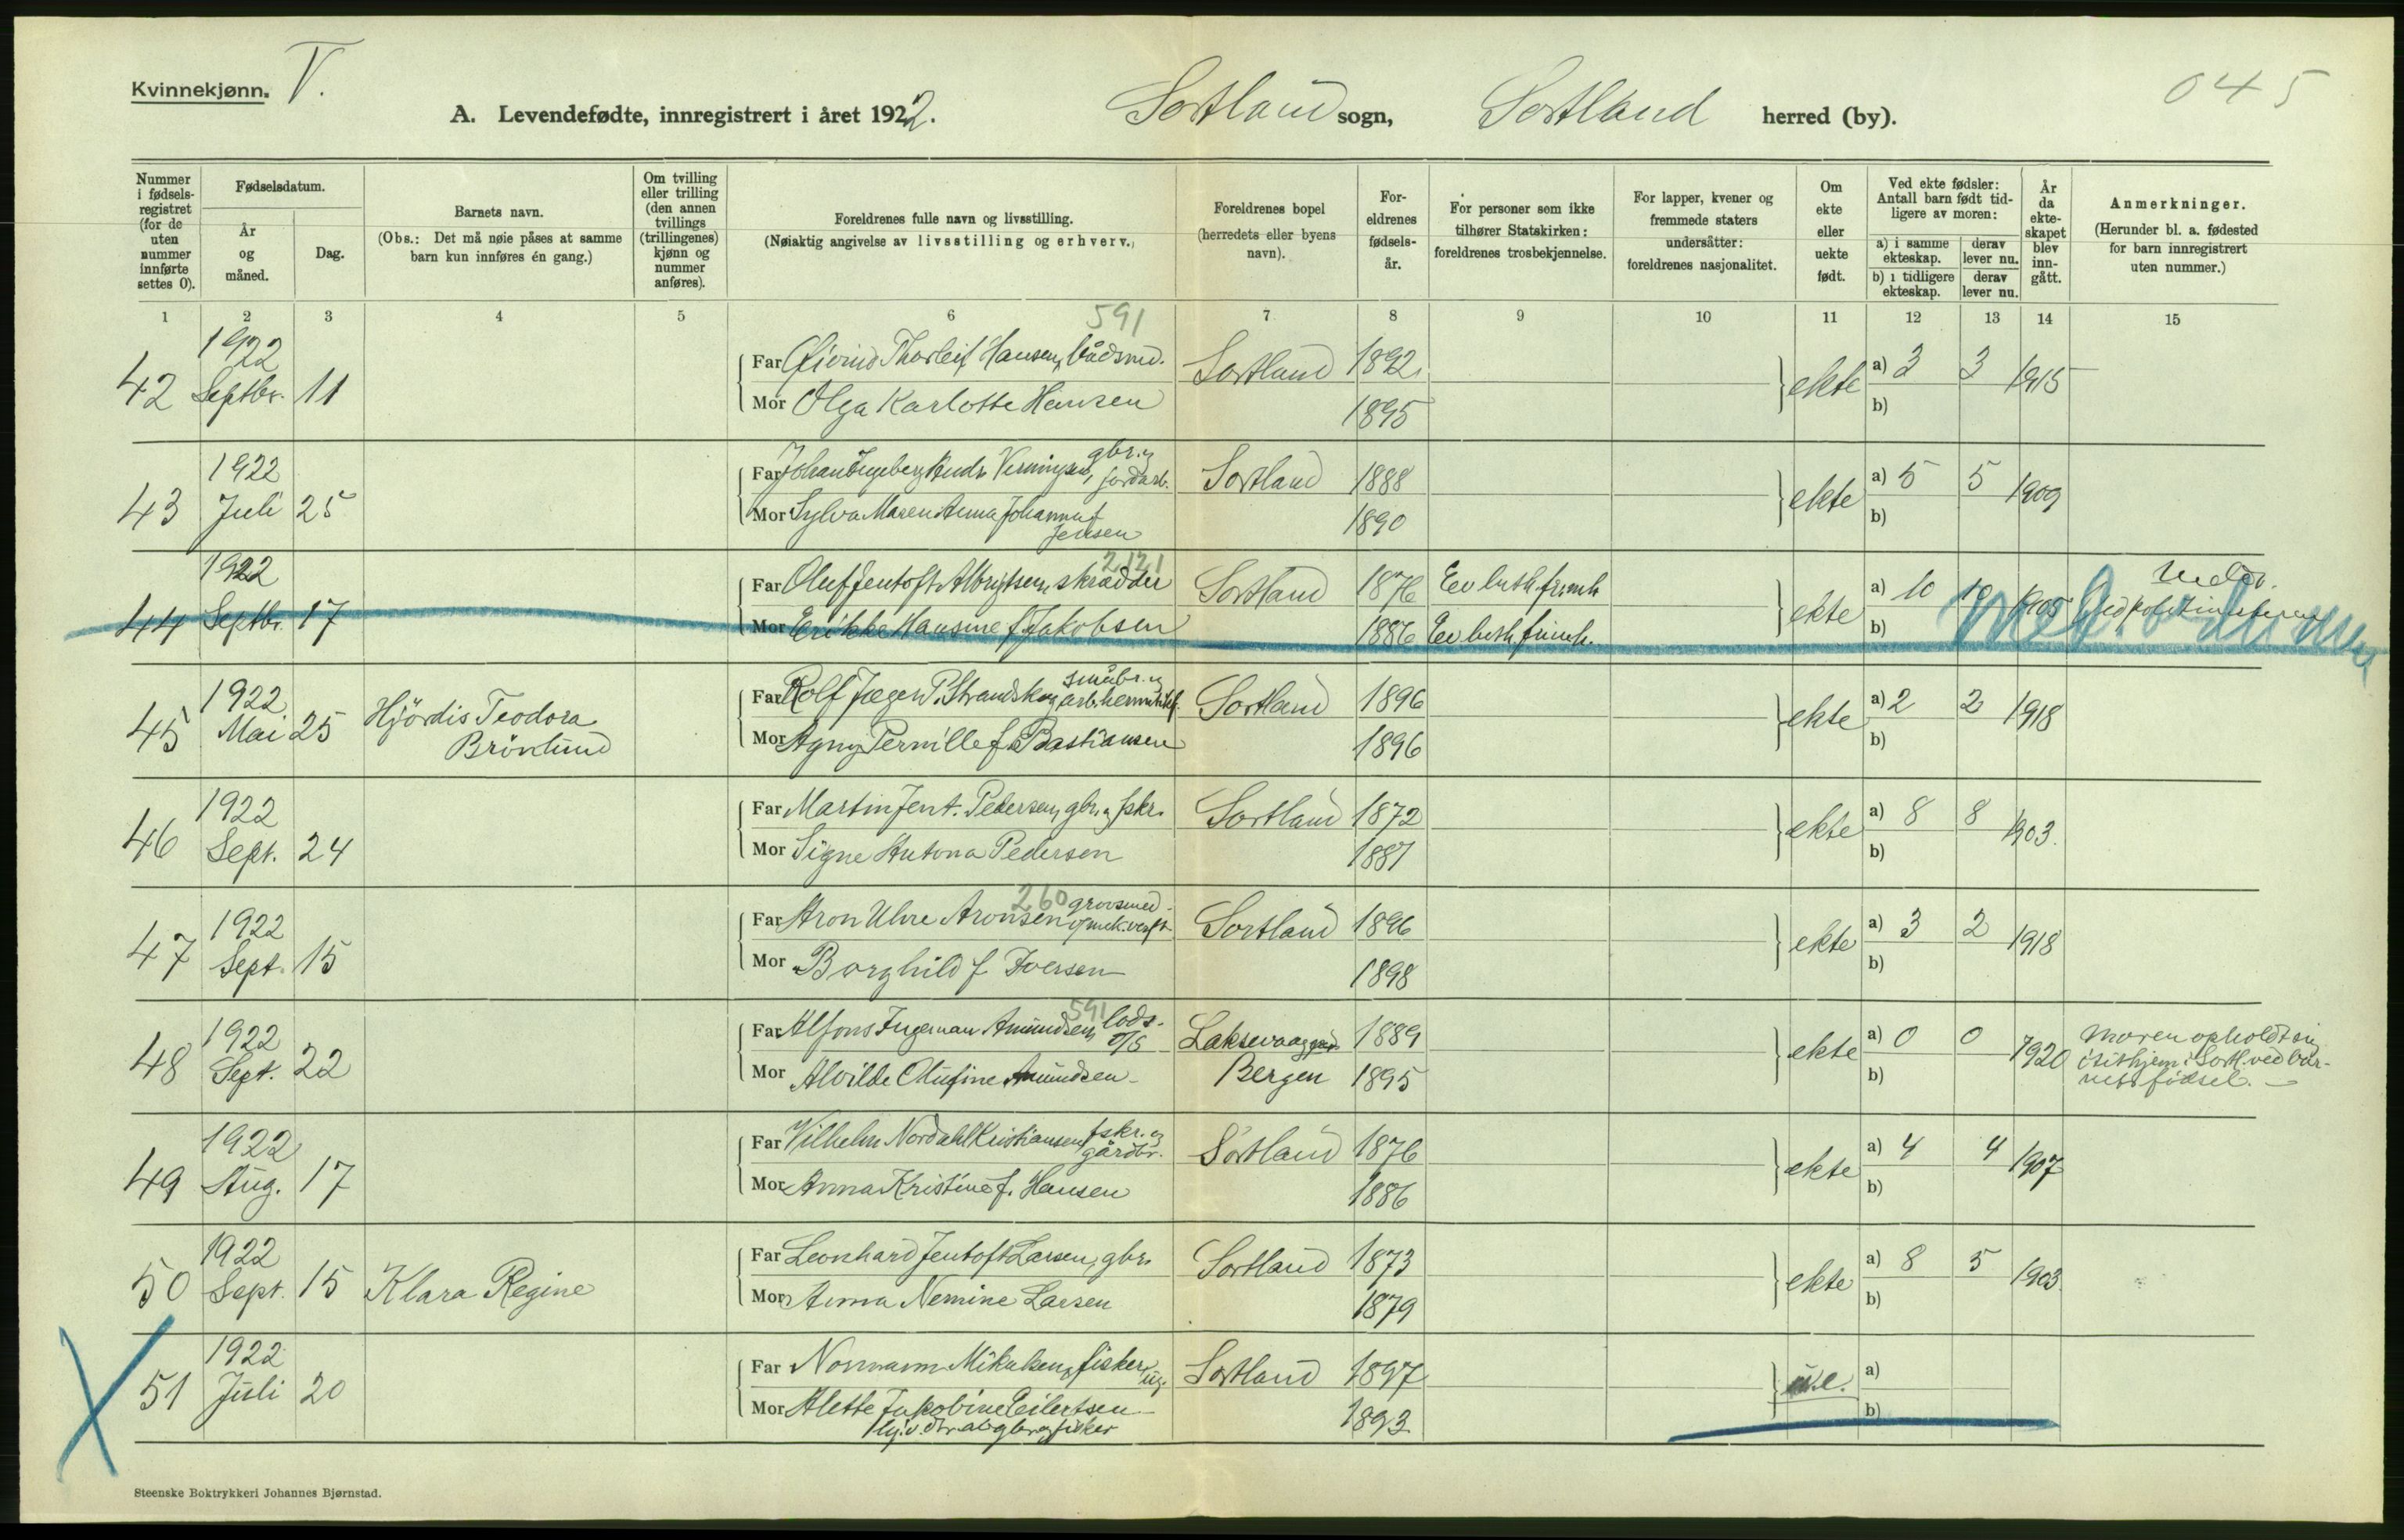 Kvinnekjønn. V.
A. Levendefødte, innregistrert i året 1922. Sortland sogn, Sortland herred (by).
045
Nummer i fødsels-registret (for de uten nummer innførte settes 0).
Fødselsdatum.
År og måned.
Dag.
Barnets navn.
(Obs.: Det må nøie påses at samme barn kun innføres én gang.)
Om tvilling eller trilling (den annen tvillings (trillingenes) kjønn og nummer anføres).
Foreldrenes fulle navn og livsstilling.
(Nøiaktig angivelse av livsstilling og erhverv.)
Foreldrenes bopel (herredets eller byens navn).
For-eldrenes fødsels-år.
For personer som ikke tilhører Statskirken: foreldrenes trosbekjennelse.
For lapper, kvener og fremmede staters undersåtter: foreldrenes nasjonalitet.
Om ekte eller uekte født.
Ved ekte fødsler: Antall barn født tid-ligere av moren:
a) i samme ekteskap.
derav lever nu.
b) i tidligere ekteskap.
derav lever nu.
År da ekte-skapet blev inn-gått.
Anmerkninger.
(Herunder bl. a. fødested for barn innregistrert uten nummer.)
1 2 3 4 5 6 7 8 9 10 11 12 13 14 15
591
42 1922 Septbr. 11 Far Øivind Thorleif Hansen, Sortland 1892 ekte a) 3 3 1915
Mor Olga Karlotte Hansen 1895 b)
43 1922 Juli 25 Far Johan Ingeberg gbr. og jordarb. Sortland 1888 ekte a) 5 5 1909
Mor Sylva Maren Anna Johanna f Jensen 1890 b)
2121
44 1922 Septbr. 17 Far Oluf Jentoft Albrigtsen, skrædder Sortland 1876 Ev luth frimh ekte a) 10 10 1905
Mor Erikke Hansine f Jakobsen 1886 Ev luth frimh. b)
45 1922 Mai 25 Hjördis Teodora Brönlund Far Rolf Jæger P. Strandskog småbr. og Sortland 1896 ekte a) 2 2 1918
Mor Agny Pernille f. Bastiansen 1896 b)
46 1922 Sept. 24 Far Martin Jent. Pedersen, gbr. og fskr. Sortland 1872 ekte a) 8 8 1903.
Mor Signe Antona Pedersen 1881 b)
260
47 1922 Sept. 15 Far Aron Uhre Aronsen grovsmed mek. verkst. Sortland 1896 ekte a) 3 2 1918
Mor Borghild f Iversen 1898 b)
591
48 1922 Sept. 22 Far Alfons Ingeman Amundsen, Laksevaag 1889 ekte a) 0 0 1920 Moren opholdt sig i sit hjem i Sortl. ved bar-nets födsel.
Mor Alvilde Olufine Amundsen Bergen 1895 b)
49 1922 Aug. 17 Far Vilhelm Nordahl Kristiansen fskr. og gårdbr. Sortland 1876 ekte a) 4 4 1907
Mor Anna Kristine f. Hansen 1886 b)
50 1922 Sept. 15 Klara Regine Far Leonhard Jentoft Larsen, gbr. Sortland 1873 ekte a) 8 5 1903.
Mor Anna Nemine Larsen 1879 b)
51 1922 Juli 20 Far Normann Mikalsen, fisker, ug. Sortland 1897 u.e. a)
Mor Alette Jakobine Eilertsen 1893 b)
Steenske Boktrykkeri Johannes Bjørnstad.